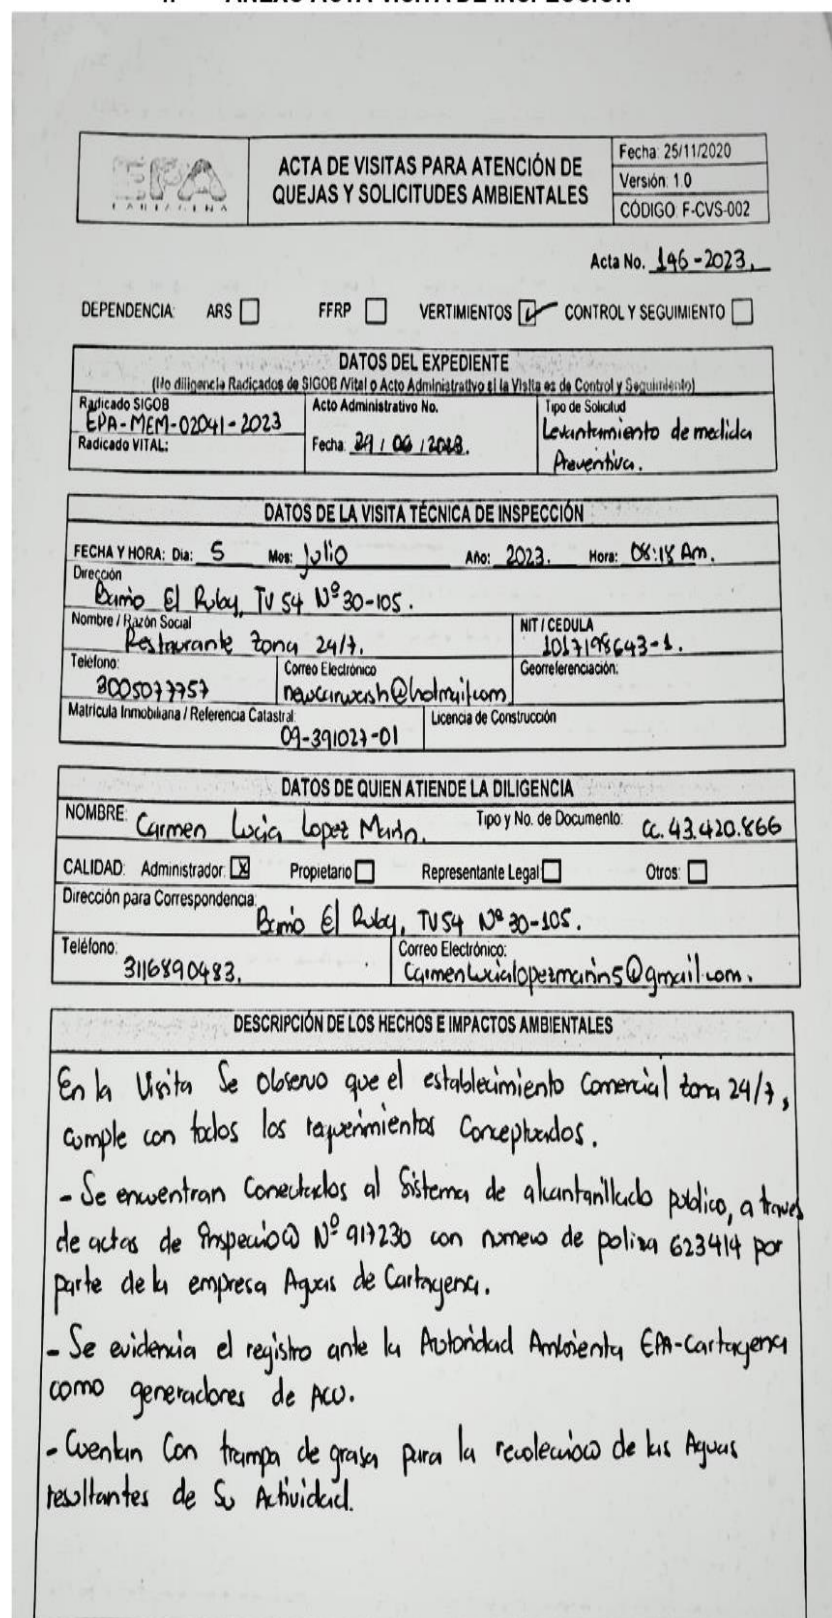 ANEXO ACTA VISITA DE INSPECCIÓN
EPA
CARTAGENA
ACTA DE VISITAS PARA ATENCIÓN DE
QUEJAS Y SOLICITUDES AMBIENTALES
Fecha: 25/11/2020
Versión: 1.0
CÓDIGO: F-CVS-002
Acta No. 146-2023.
DEPENDENCIA: ARS FFRP VERTIMIENTOS CONTROL Y SEGUIMIENTO
DATOS DEL EXPEDIENTE
(No diligencie Radicados de SIGOB /Vital o Acto Administrativo si la Visita es de Control y Seguimiento)
Radicado SIGOB
EPA-MEM-02041-2023
Radicado VITAL:
Acto Administrativo No.
Fecha: 29/06/2023.
Tipo de Solicitud
Levantamiento de medida
Preventiva.
DATOS DE LA VISITA TÉCNICA DE INSPECCIÓN
FECHA Y HORA: Dia: 5 Mes: Julio Año: 2023. Hora: 08:18 Am.
Dirección
Barrio El Ruby, TV 54 Nº 30-105.
Nombre / Razón Social
Restaurante zona 24/7.
NIT / CEDULA
1017198643-1.
Teléfono:
3005077757
Correo Electrónico
newcarwash@hotmail.com
Georreferenciación:
Matrícula Inmobiliana / Referencia Catastral:
09-391027-01
Licencia de Construcción
DATOS DE QUIEN ATIENDE LA DILIGENCIA
NOMBRE: Carmen Lucia Lopez Marin. Tipo y No. de Documento: CC. 43.420.866
CALIDAD: Administrador: X Propietario Representante Legal Otros:
Dirección para Correspondencia:
Barrio El Ruby, TV 54 Nº 30-105.
Teléfono:
3116890483.
Correo Electrónico:
Carmenlucialopezmarin5@gmail.com.
DESCRIPCIÓN DE LOS HECHOS E IMPACTOS AMBIENTALES
En la Visita Se observo que el establecimiento Comercial zona 24/7,
cumple con todos los requerimientos Conceptuados.
- Se encuentran Conectados al Sistema de alcantarillado publico, a traves
de actas de Inspeccion Nº 917230 con numero de poliza 623414 por
parte de la empresa Aguas de Cartagena.
- Se evidencia el registro ante la Autoridad Ambienta EPA-Cartagena
como generadores de ACU.
- Cuentan Con trampa de grasa para la recoleccion de las Aguas
resultantes de Su Actividad.